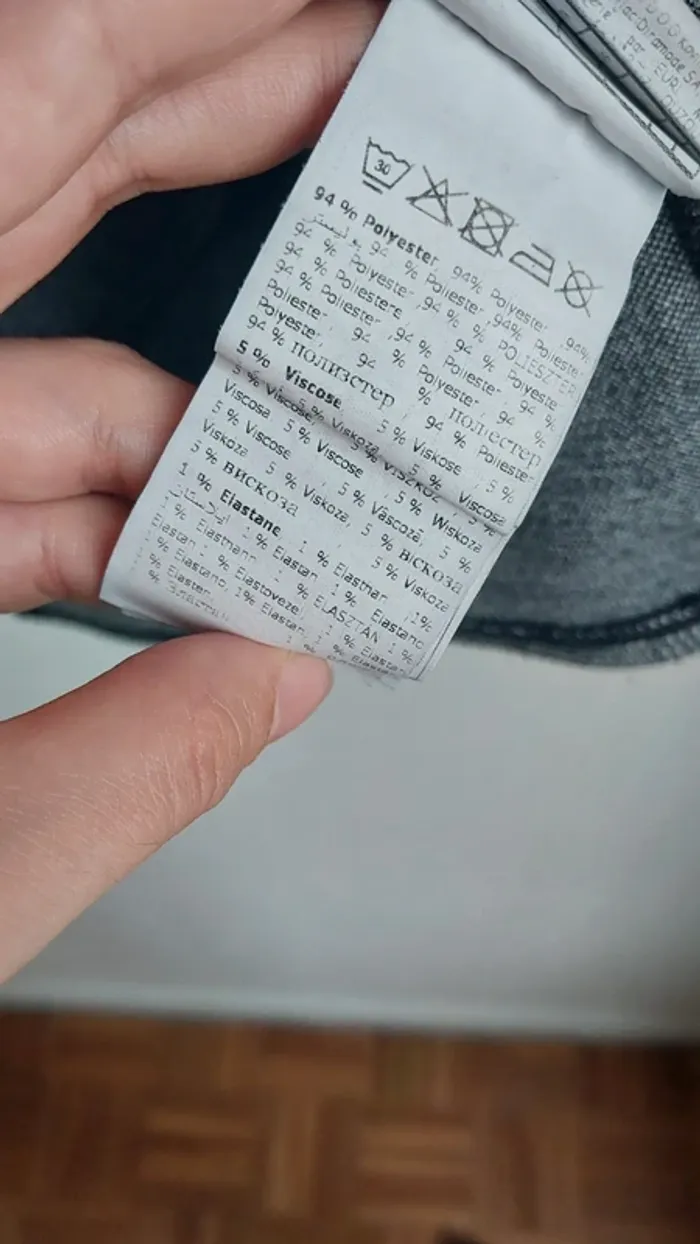 30
94 % Polyester, 94% Polyester ,94%
بوليستر 94 % Poliester 94% Poliester
94 % Polyester ,94 % POLIESZTER
94 % Poliestere 94 % Polyeste
94 % Poliester ,94 % Poliester 94 %
Poliester, 94 % Polyester, 94 %
Polyester, 94 % поліестер
94 % полиэстер , 94 % Poliester
5 % Viscose, 5 % Viskose , 5 %
5 % Viscose 5 % Viskoza 5 % Viscosa
Viscosa 5 % Viscose 5 %
5 % Viscose , 5 % Vâscoza, 5 % Wiskoza
Viskoza 5 % Viskoza, 5 % вiскоза
5 % вискоза 5 % Viskoza
1 % Elastane 1 % Elasthan ,1%
1 % Elasthann 1 % Elastan Elastano
Elastan 1 % ELASZTAN 1 %
% Elastano, 1% Elastan, 1 % Elastan
% Elastan